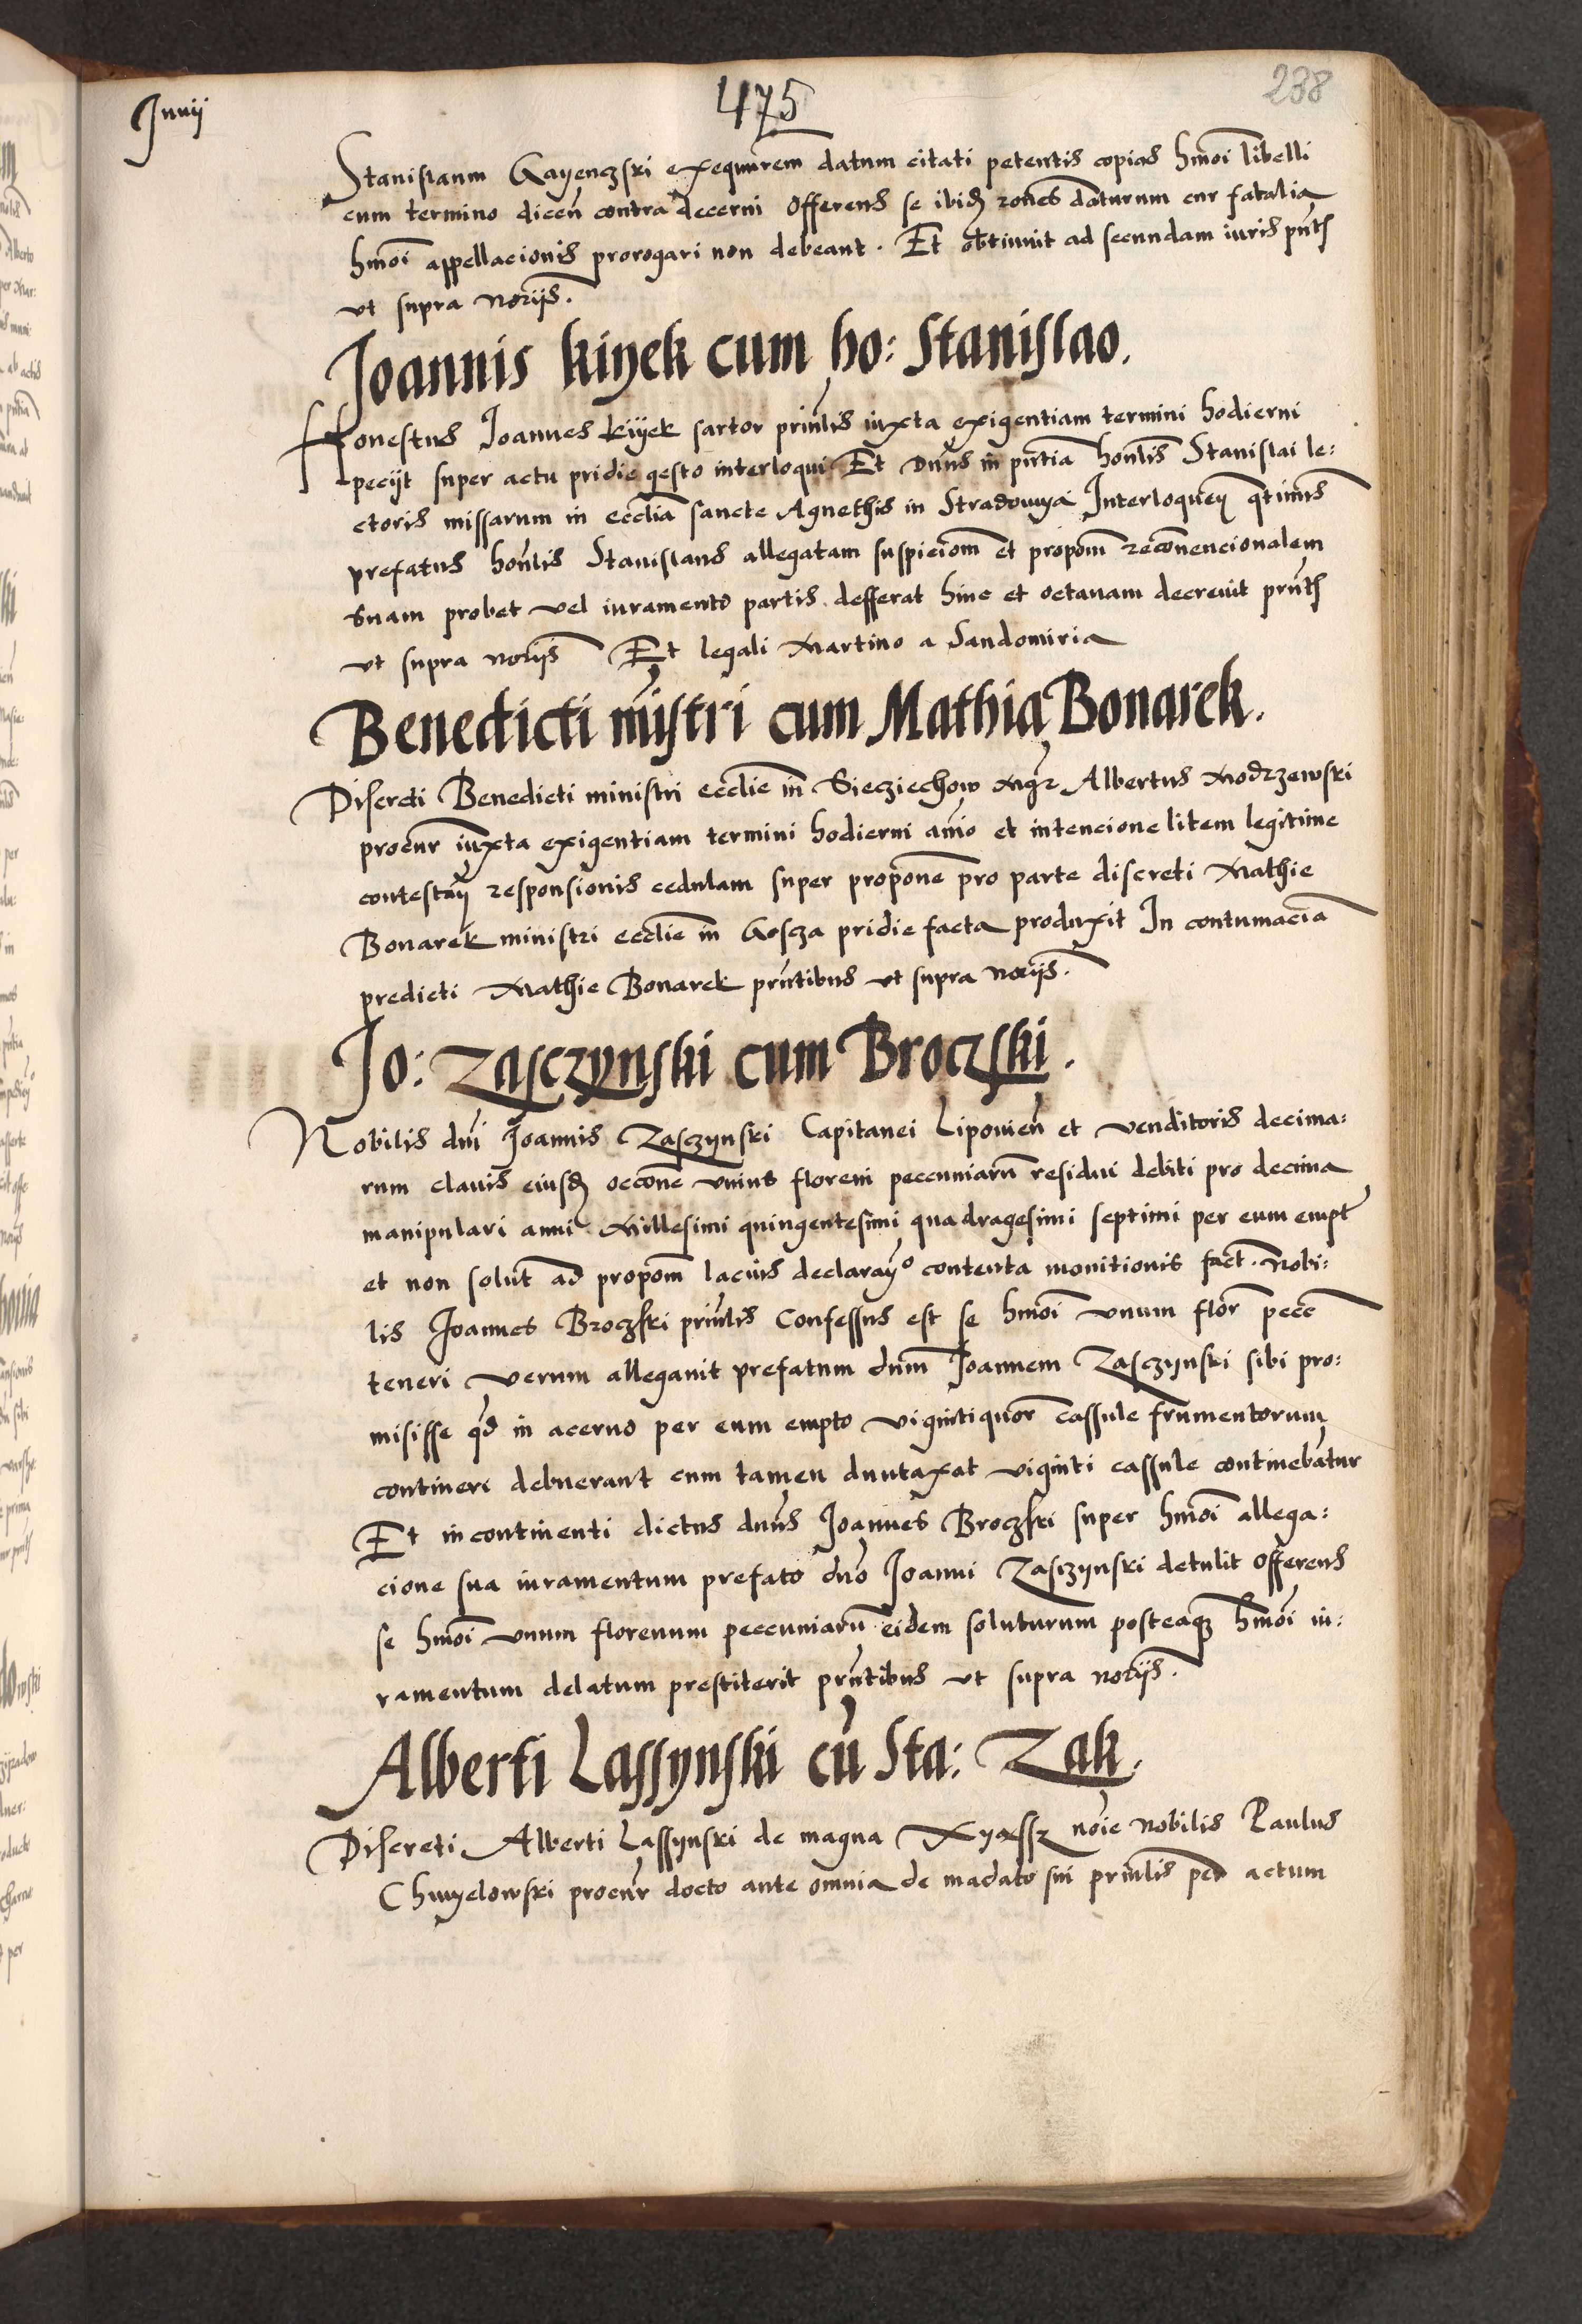 Junij
475
238
Stanislaum Gayenczski exequutrem datum citati petentis copias hmoi libelli
cum termino dicen contra decerni Offerens se ibid rones daturum cur fatalia
hmoi appellacionis prorogari non debeant. Et obtinuit ad secundam iuris pntb
vt supra notrijs.
Joannis kiyek cum ho: Stanislao.
Honestus Joannes kiyek sartor prinlis iuxta exigentiam termini hodierni
pecijt super actu pridie gesto interloqui Et Dnus in pntia honlis Stanislai le:
ctoris missarum in ecclia sancte Agnethis in Stradomya Interloquen qtinus
prefatus honlis Stanislaus allegatam suspiciom et propom reconuencionalem
suam probet vel iuramento partis defferat hinc et octauam decreuit pntb
vt supra notrijs Et legali Martino a Sandomiria
Benedicti mistri cum Mathia Bonarek.
Discreti Benedicti ministri ecclie in Siecziechow Mgr Albertus Modrzewski
procur iuxta exigentiam termini hodierni anio et intencione litem legitime
contestan responsionis cedulam super propone pro parte discreti Mathie
Bonarek ministri ecclie in Gosza pridie facta produxit In contumacia
predicti Mathie Bonarek pntibus vt supra notrijs.
Jo: Zasczynski cum Broczski.
Nobilis dni Joannis Zasczynski Capitanei Lipouien et venditoris decima:
rum clauis eiusd occone vnius floreni peccuniaru residui debiti pro decima
manipulari anni Millesimi quingentesimi quadragesimi septimi per eum empt
et non solut ad propom lacius declaran contenta monitionis fact. Nobi:
lis Joannes Broczski prinlis Confessus est se hmoi vnum flor pecc
teneri verum allegauit prefatum dnum Joannem Zasczynski sibi pro:
misisse qd in aceruo per eum empto vigintiquor cassule frumentorum
contineri debuerant cum tamen duntaxat viginti cassule continebatur
Et incontinenti dictus dnus Joannes Broczski super hmoi allega:
cione sua iuramentum prefato dno Joanni Zasczynski detulit Offerens
se hmoi vnum florenum peccuniaru eidem soluturum posteaq hmoi iu:
ramentum delatum prestiterit pntibus vt supra notrijs.
Alberti Lassynski cu Sta: Zak.
Discreti Alberti Lassynski de magna noie nobilis Paulus
Chmyelowski procur docto ante omnia de madato sui prinlis per actum